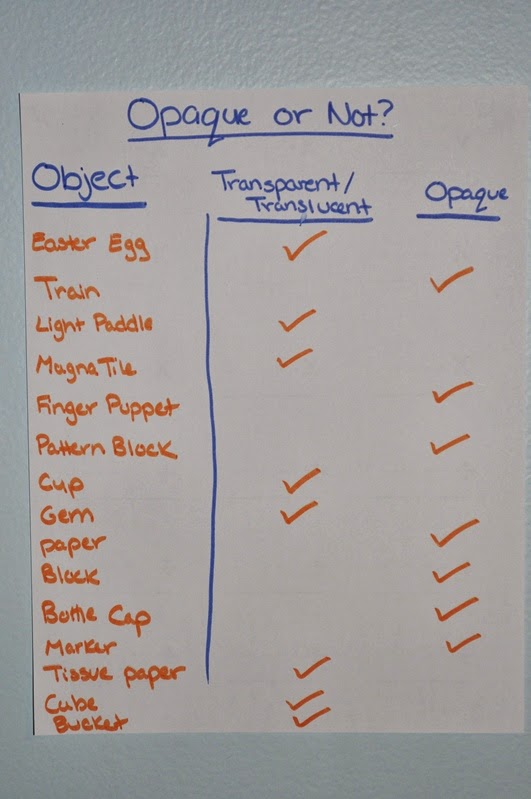 Opaque or Not?
Object Transparent/ Opaque
Translucent
Easter Egg ✓
Train ✓
Light Paddle ✓
MagnaTile ✓
Finger Puppet ✓
Pattern Block ✓
Cup ✓
Gem ✓
paper ✓
Block ✓
Bottle Cap ✓
Marker ✓
Tissue paper ✓
Cube ✓
Bucket ✓